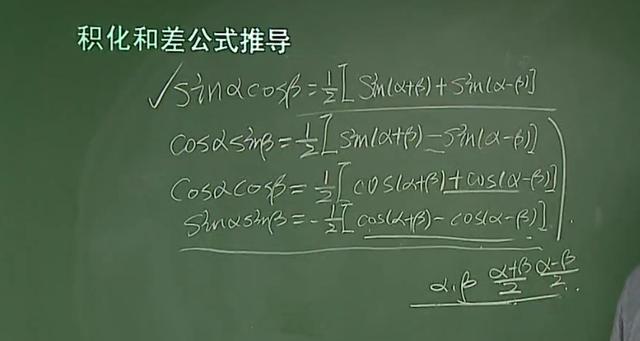 积化和差公式推导
✓sinαcosβ=½[sin(α+β)+sin(α-β)]
cosαsinβ=½[sin(α+β)-sin(α-β)]
cosαcosβ=½[cos(α+β)+cos(α-β)]
sinαsinβ=-½[cos(α+β)-cos(α-β)]
α.β (α+β)/2 (α-β)/2